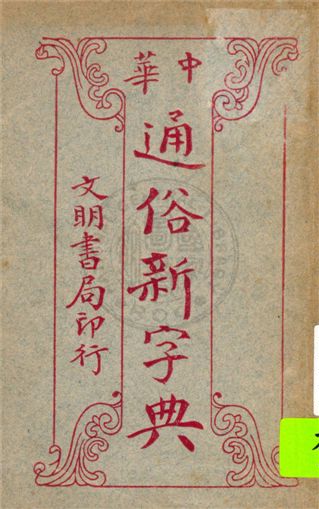 中華
通俗新字典
文明書局印行